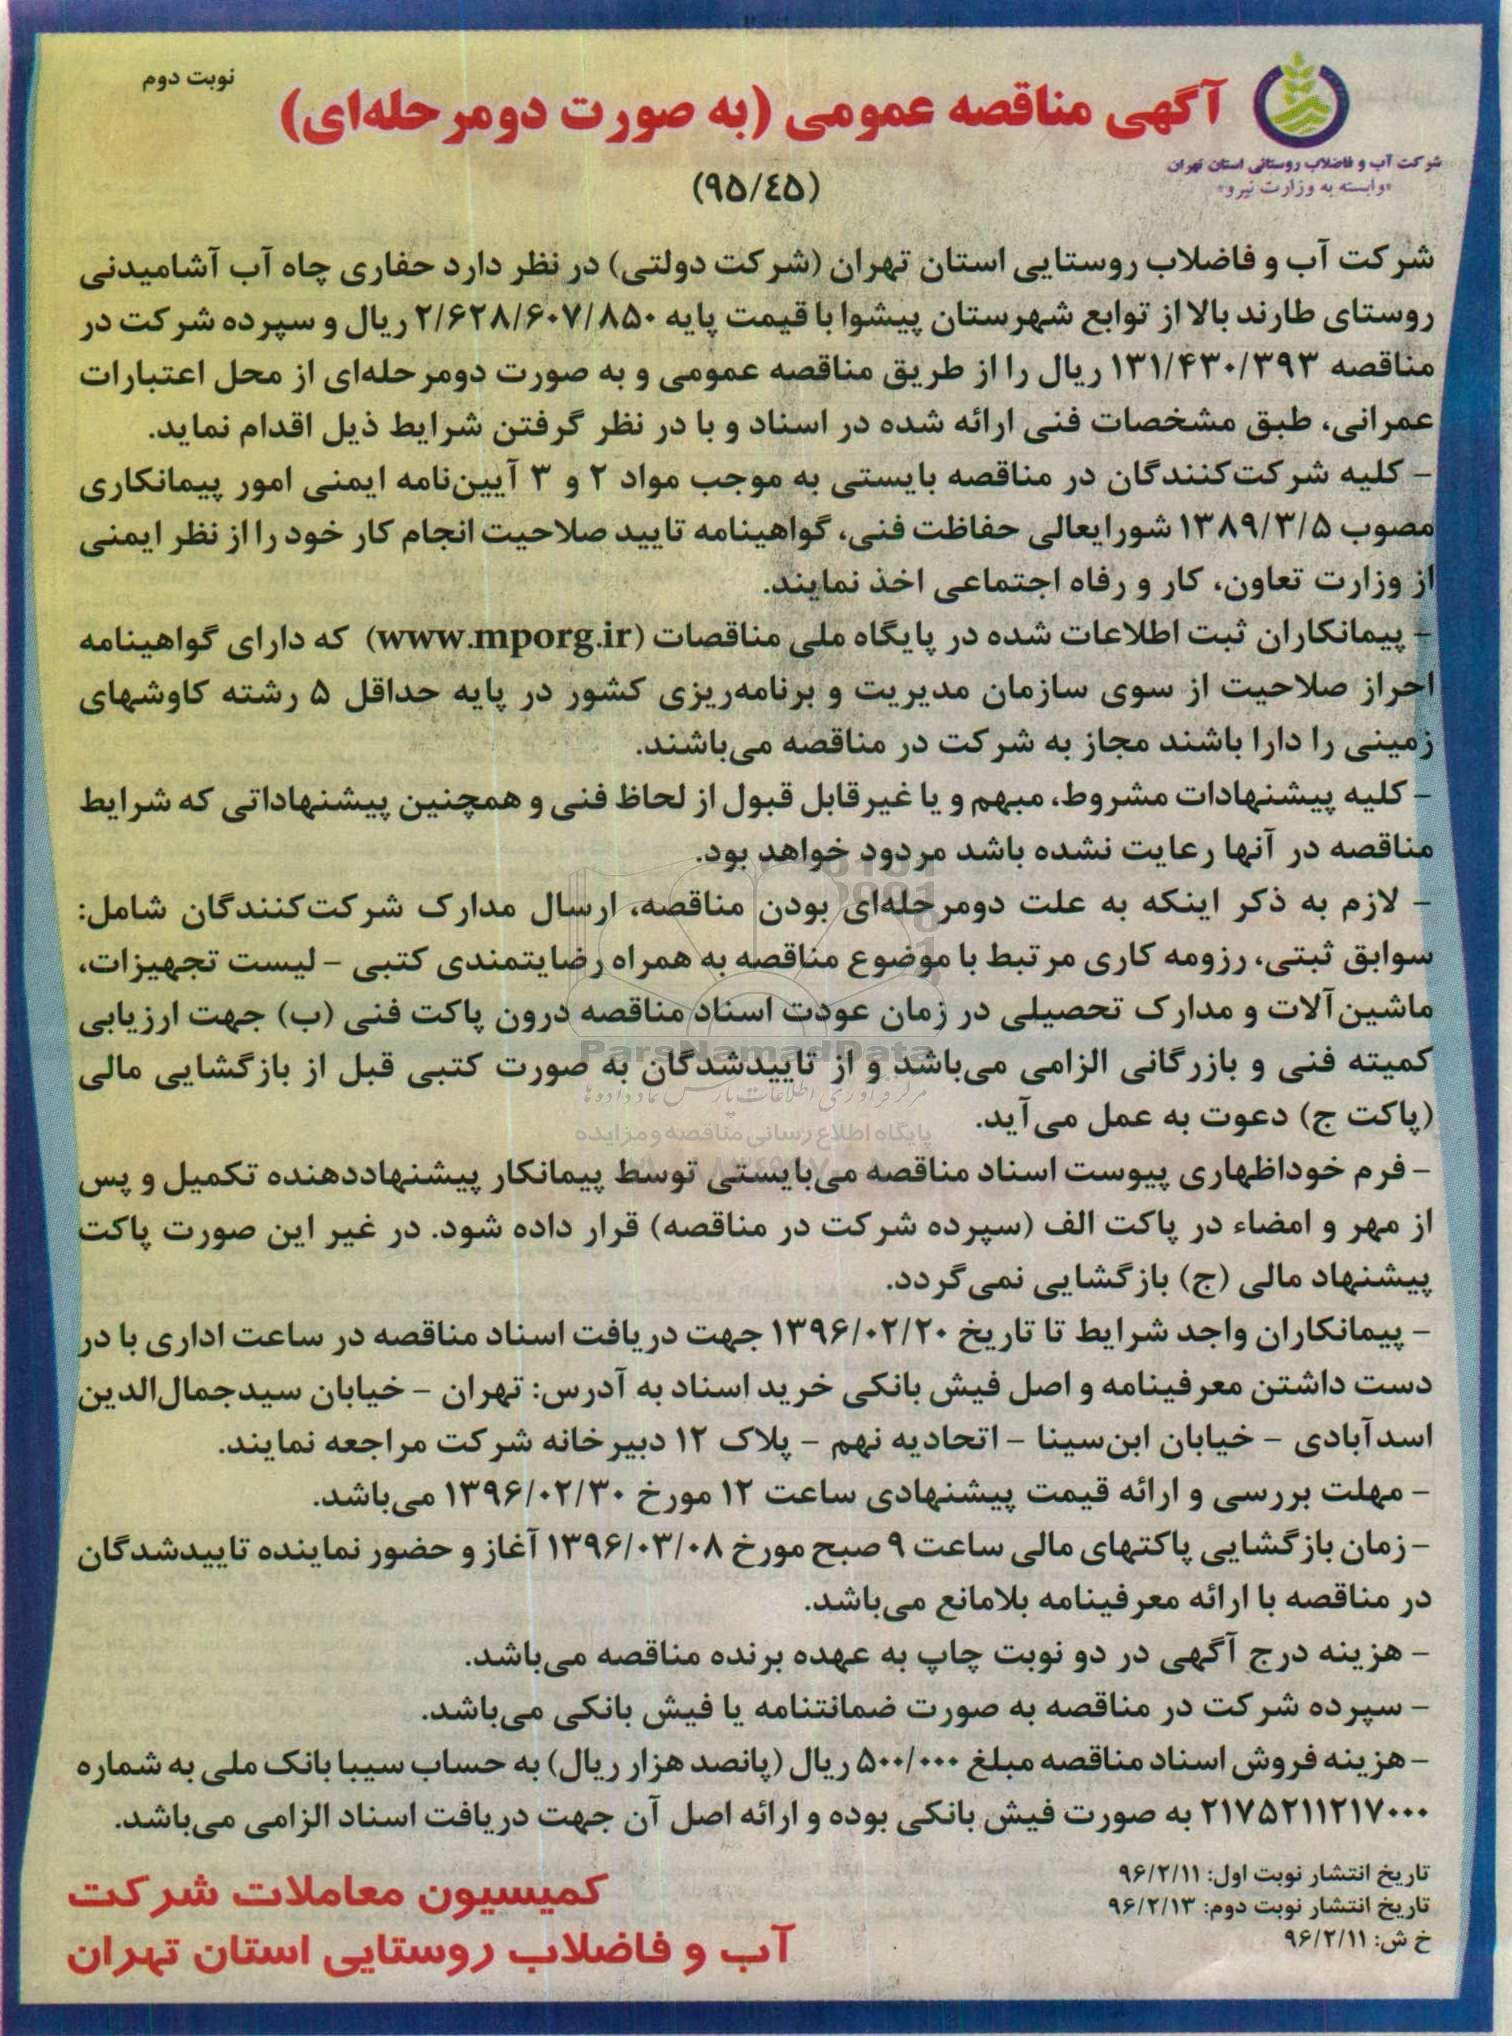 نوبت دوم
آگهی مناقصه عمومی (به صورت دومرحله‌ای)
شرکت آب و فاضلاب روستائی استان تهران
«وابسته به وزارت نیرو»
(۹۵/۴۵)
شرکت آب و فاضلاب روستایی استان تهران (شرکت دولتی) در نظر دارد حفاری چاه آب آشامیدنی
روستای طارند بالا از توابع شهرستان پیشوا با قیمت پایه ۲/۶۲۸/۶۰۷/۸۵۰ ریال و سپرده شرکت در
مناقصه ۱۳۱/۴۳۰/۳۹۳ ریال را از طریق مناقصه عمومی و به صورت دومرحله‌ای از محل اعتبارات
عمرانی، طبق مشخصات فنی ارائه شده در اسناد و با در نظر گرفتن شرایط ذیل اقدام نماید.
- کلیه شرکت‌کنندگان در مناقصه بایستی به موجب مواد ۲ و ۳ آیین‌نامه ایمنی امور پیمانکاری
مصوب ۱۳۸۹/۳/۵ شورایعالی حفاظت فنی، گواهینامه تایید صلاحیت انجام کار خود را از نظر ایمنی
از وزارت تعاون، کار و رفاه اجتماعی اخذ نمایند.
- پیمانکاران ثبت اطلاعات شده در پایگاه ملی مناقصات (www.mporg.ir) که دارای گواهینامه
احراز صلاحیت از سوی سازمان مدیریت و برنامه‌ریزی کشور در پایه حداقل ۵ رشته کاوشهای
زمینی را دارا باشند مجاز به شرکت در مناقصه می‌باشند.
- کلیه پیشنهادات مشروط، مبهم و یا غیرقابل قبول از لحاظ فنی و همچنین پیشنهاداتی که شرایط
مناقصه در آنها رعایت نشده باشد مردود خواهد بود.
- لازم به ذکر اینکه به علت دومرحله‌ای بودن مناقصه، ارسال مدارک شرکت‌کنندگان شامل:
سوابق ثبتی، رزومه کاری مرتبط با موضوع مناقصه به همراه رضایتمندی کتبی - لیست تجهیزات،
ماشین‌آلات و مدارک تحصیلی در زمان عودت اسناد مناقصه درون پاکت فنی (ب) جهت ارزیابی
کمیته فنی و بازرگانی الزامی می‌باشد و از تاییدشدگان به صورت کتبی قبل از بازگشایی مالی
(پاکت ج) دعوت به عمل می‌آید.
ParsNamadData
مرکز فرآوری اطلاعات پارس نماد داده‌ها
پایگاه اطلاع رسانی مناقصه و مزایده
- فرم خوداظهاری پیوست اسناد مناقصه می‌بایستی توسط پیمانکار پیشنهاددهنده تکمیل و پس
از مهر و امضاء در پاکت الف (سپرده شرکت در مناقصه) قرار داده شود. در غیر این صورت پاکت
پیشنهاد مالی (ج) بازگشایی نمی‌گردد.
- پیمانکاران واجد شرایط تا تاریخ ۱۳۹۶/۰۲/۲۰ جهت دریافت اسناد مناقصه در ساعت اداری با در
دست داشتن معرفینامه و اصل فیش بانکی خرید اسناد به آدرس: تهران - خیابان سیدجمال‌الدین
اسدآبادی - خیابان ابن‌سینا - اتحادیه نهم - پلاک ۱۲ دبیرخانه شرکت مراجعه نمایند.
- مهلت بررسی و ارائه قیمت پیشنهادی ساعت ۱۲ مورخ ۱۳۹۶/۰۲/۳۰ می‌باشد.
- زمان بازگشایی پاکتهای مالی ساعت ۹ صبح مورخ ۱۳۹۶/۰۳/۰۸ آغاز و حضور نماینده تاییدشدگان
در مناقصه با ارائه معرفینامه بلامانع می‌باشد.
- هزینه درج آگهی در دو نوبت چاپ به عهده برنده مناقصه می‌باشد.
- سپرده شرکت در مناقصه به صورت ضمانتنامه یا فیش بانکی می‌باشد.
- هزینه فروش اسناد مناقصه مبلغ ۵۰۰/۰۰۰ ریال (پانصد هزار ریال) به حساب سیبا بانک ملی به شماره
۲۱۷۵۲۱۱۲۱۷۰۰۰ به صورت فیش بانکی بوده و ارائه اصل آن جهت دریافت اسناد الزامی می‌باشد.
تاریخ انتشار نوبت اول: ۹۶/۲/۱۱
تاریخ انتشار نوبت دوم: ۹۶/۲/۱۳
خ ش: ۹۶/۲/۱۱
کمیسیون معاملات شرکت
آب و فاضلاب روستایی استان تهران